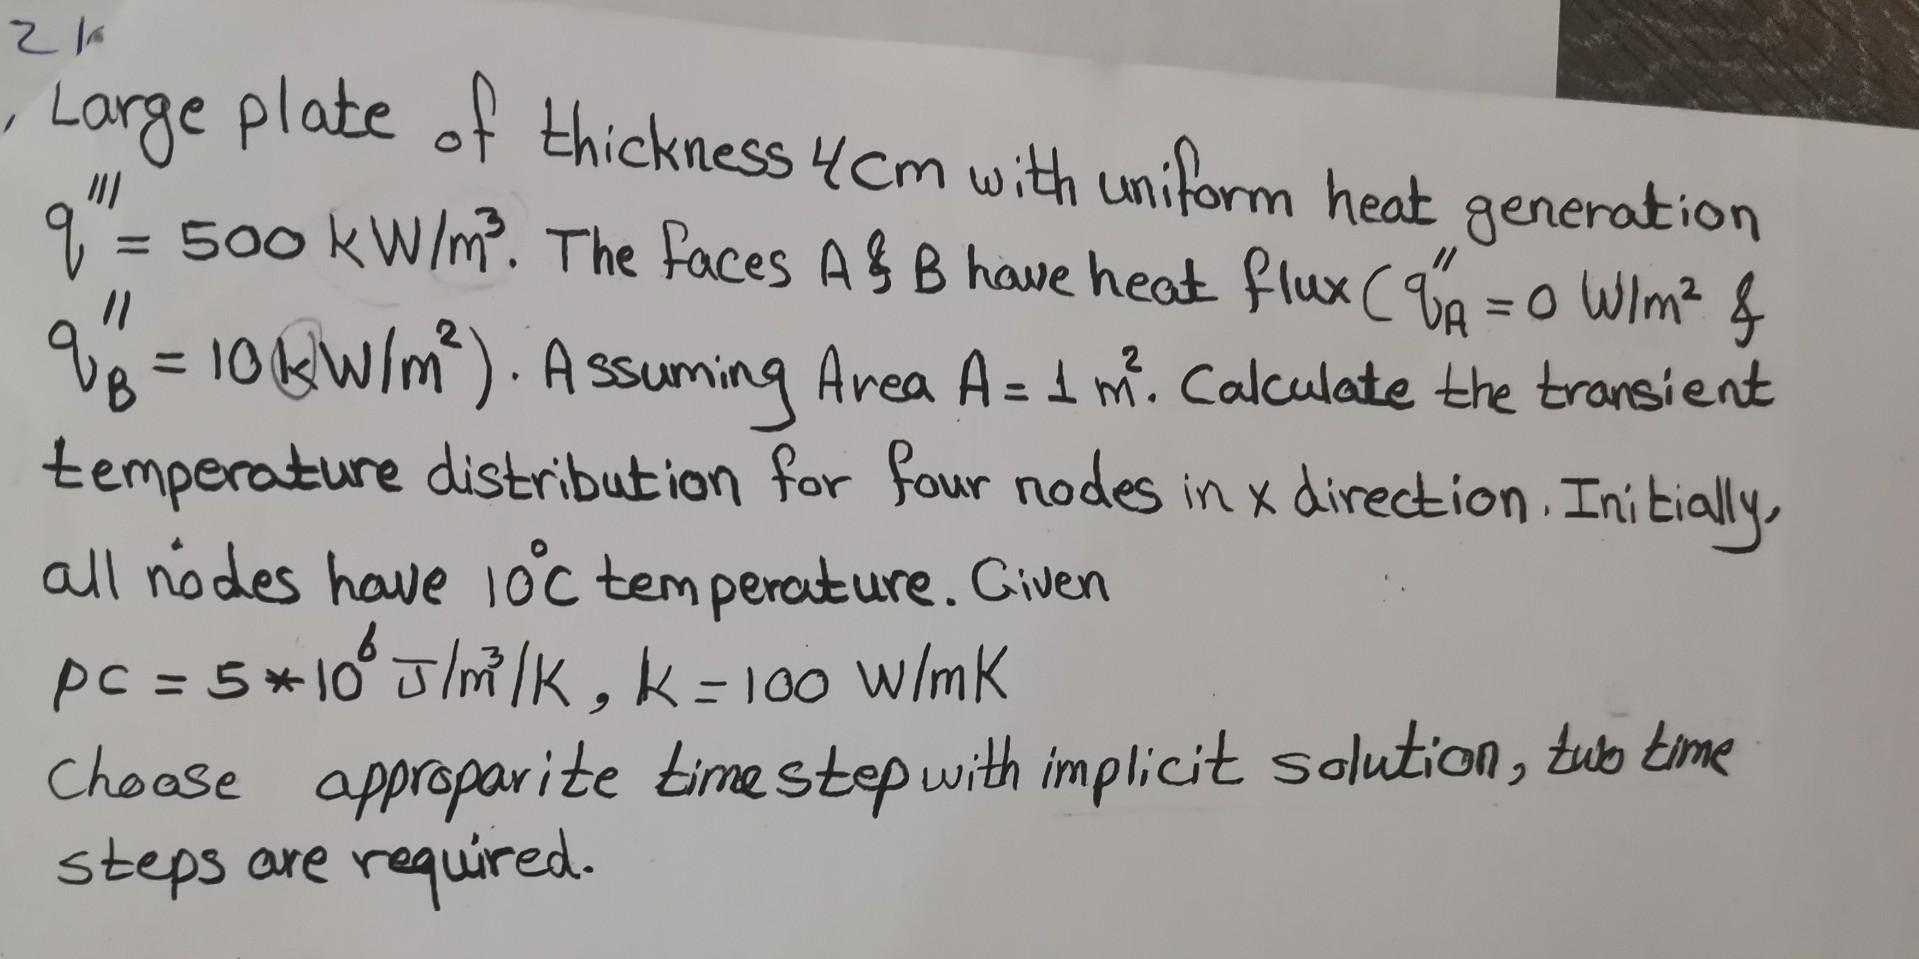 Large plate of thickness 4cm with uniform heat generation
q''' = 500 kW/m³. The faces A & B have heat flux (q''A = 0 W/m² &
q''B = 10kW/m²). Assuming Area A = 1 m². Calculate the transient
temperature distribution for four nodes in x direction. Initially,
all nodes have 10°C temperature. Given
ρc = 5*10⁶ J/m³/K, k = 100 W/mK
Choose approparite time step with implicit solution, two time
steps are required.